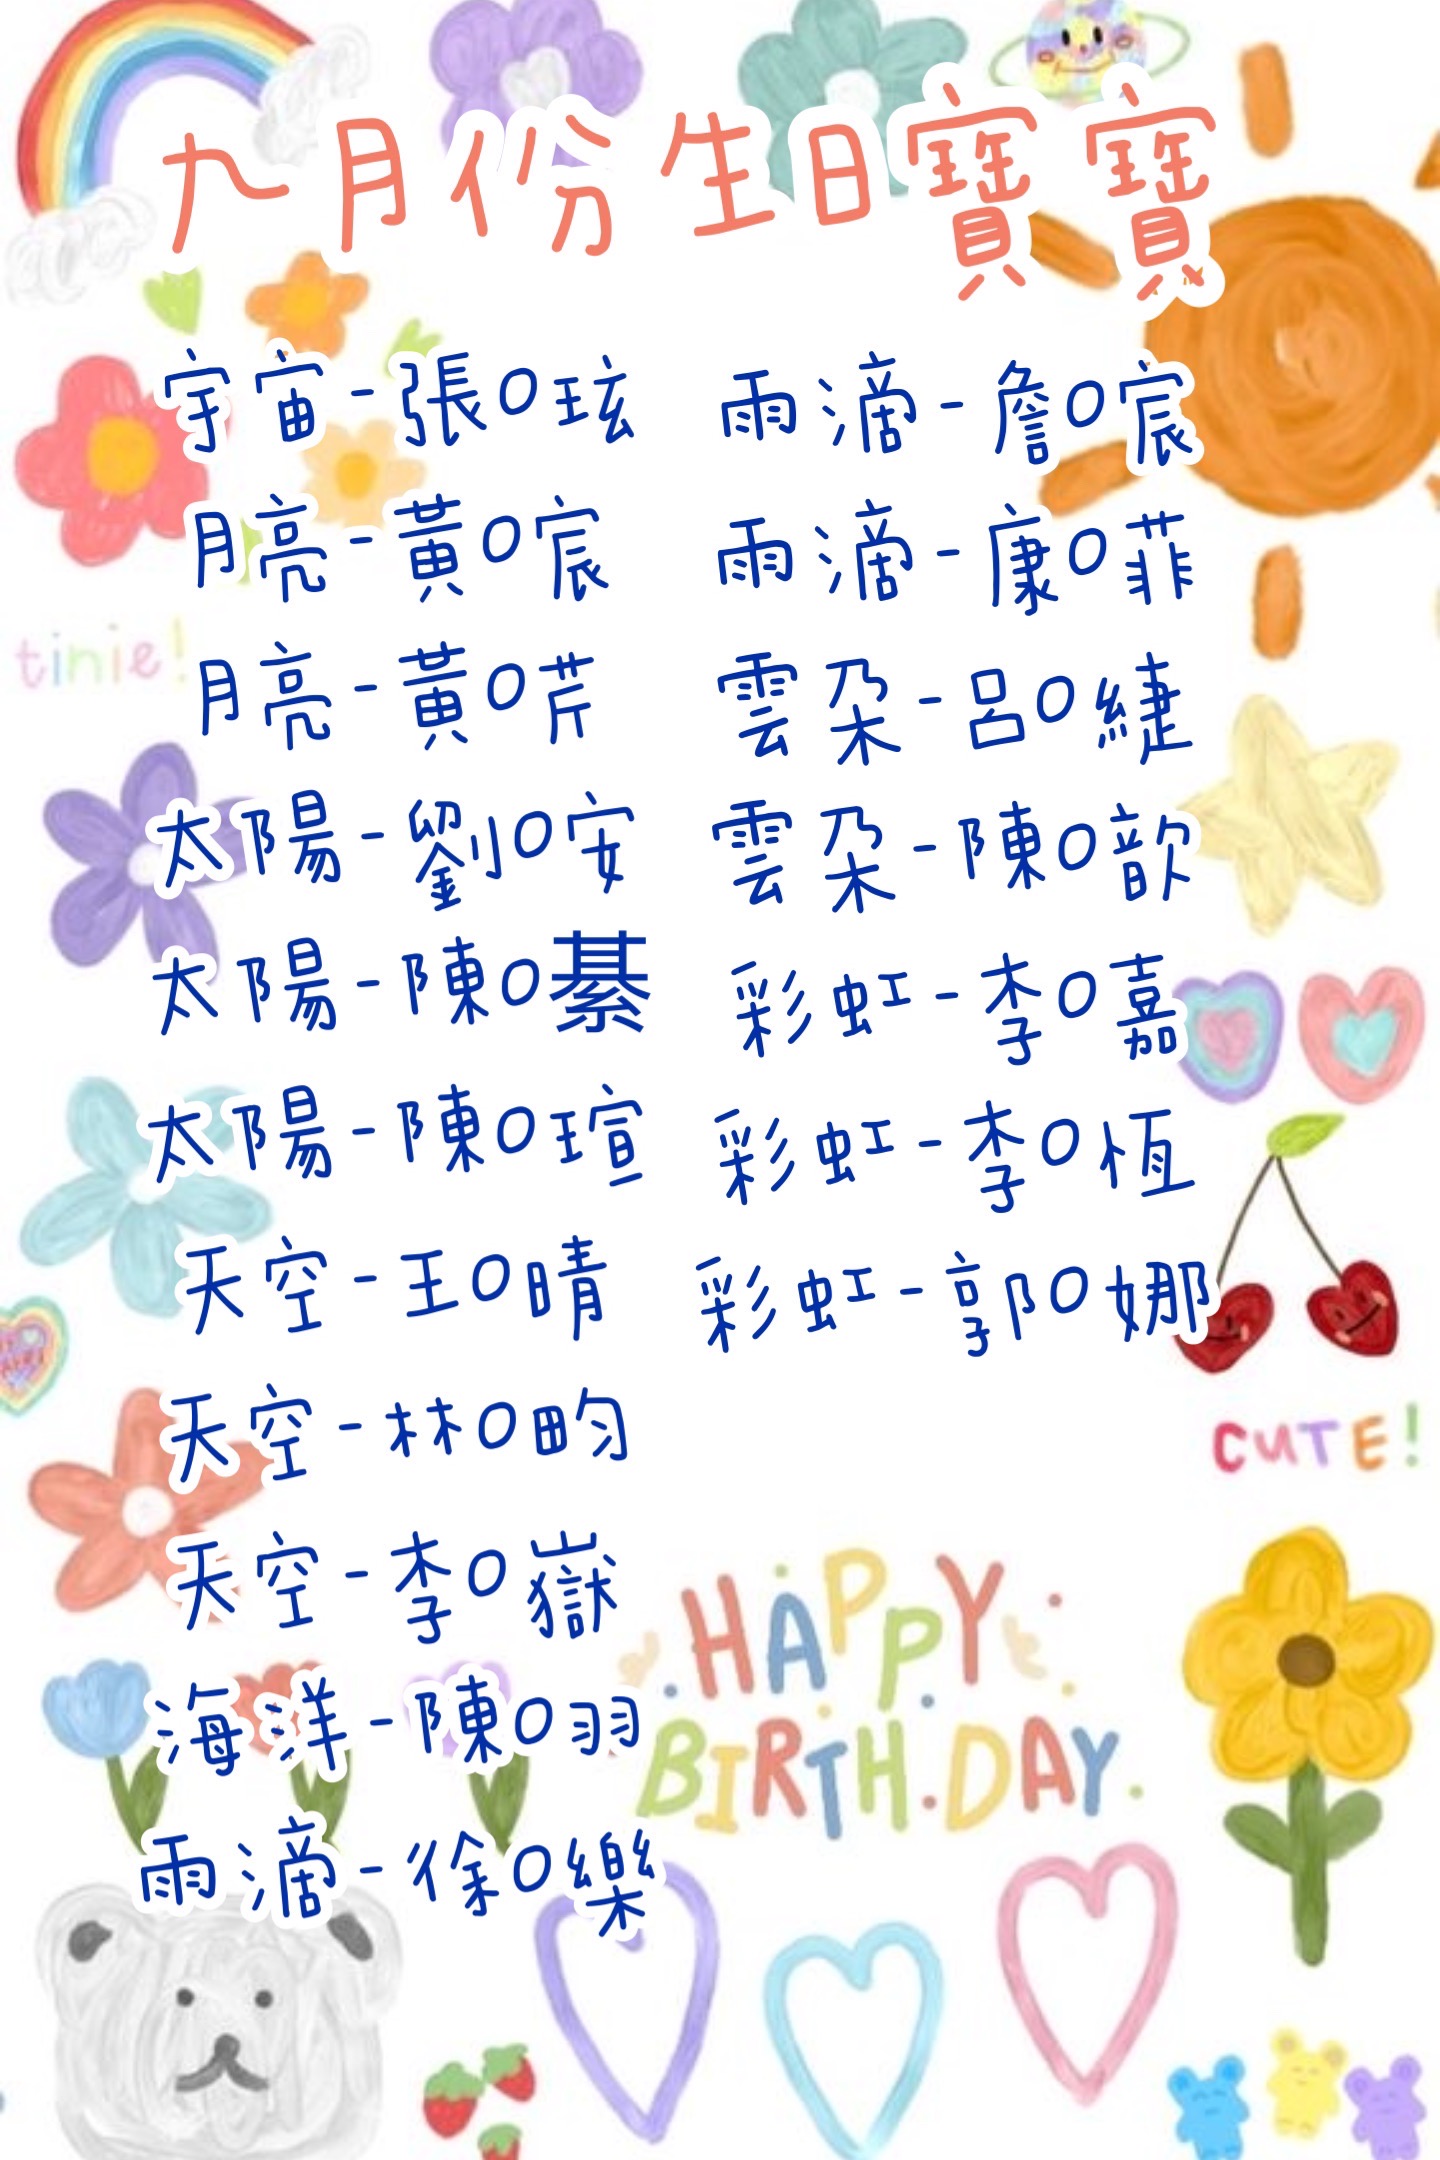 九月份生日寶寶
宇宙-張O玹
月亮-黃O宸
月亮-黃O芹
太陽-劉O安
太陽-陳O綦
太陽-陳O瑄
天空-王O晴
天空-林O昀
天空-李O嶽
海洋-陳O羽
雨滴-徐O樂
雨滴-詹O宸
雨滴-康O菲
雲朵-呂O緁
雲朵-陳O歆
彩虹-李O嘉
彩虹-李O恆
彩虹-郭O娜
tinie!
CUTE!
HAPPY
BIRTHDAY